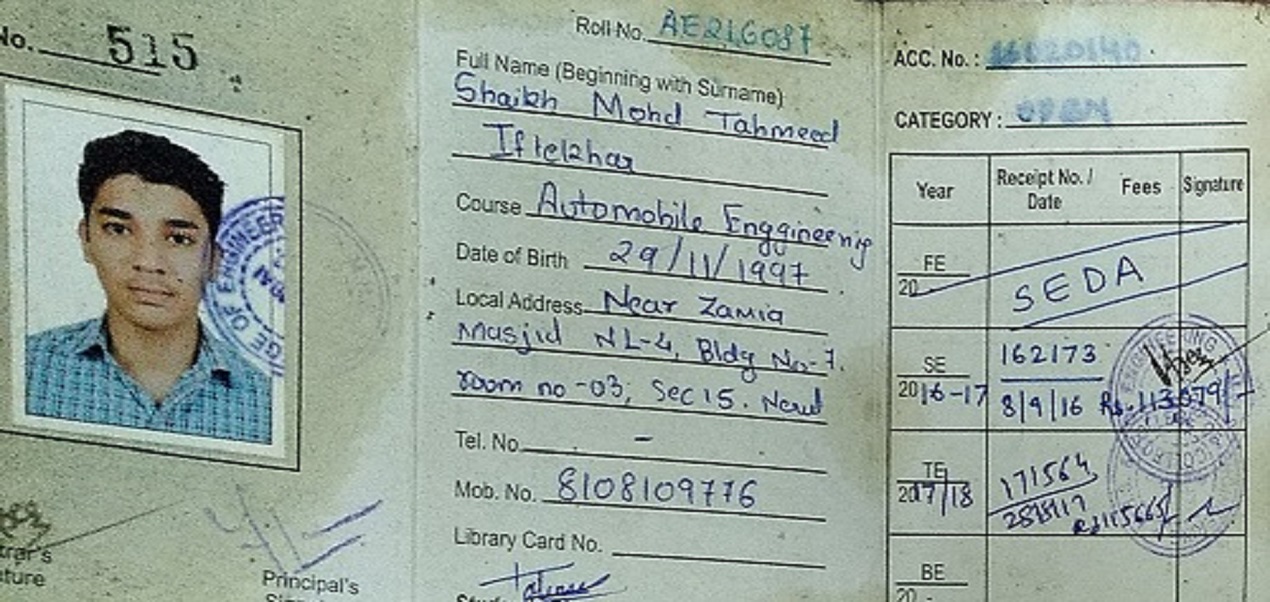 No. 515
Principal's
Roll No. AE21G087
Full Name (Beginning with Surname)
Shaikh Mohd Tahmeed
Iftekhar
Course Automobile Enggineernig
Date of Birth 29/11/1997
Local Address Near Zamia
Masjid NL-4, Bldg No-7.
room no -03, Sec 15. Nerul
Tel. No. -
Mob. No. 8108109776
Library Card No.
ACC. No. : 
CATEGORY : OPEN
Year Receipt No. / Date Fees Signature
FE 20 SEDA
SE 2016-17 162173 8/9/16 Rs. 113079/-
TE 2017/18 171564
BE 20 -